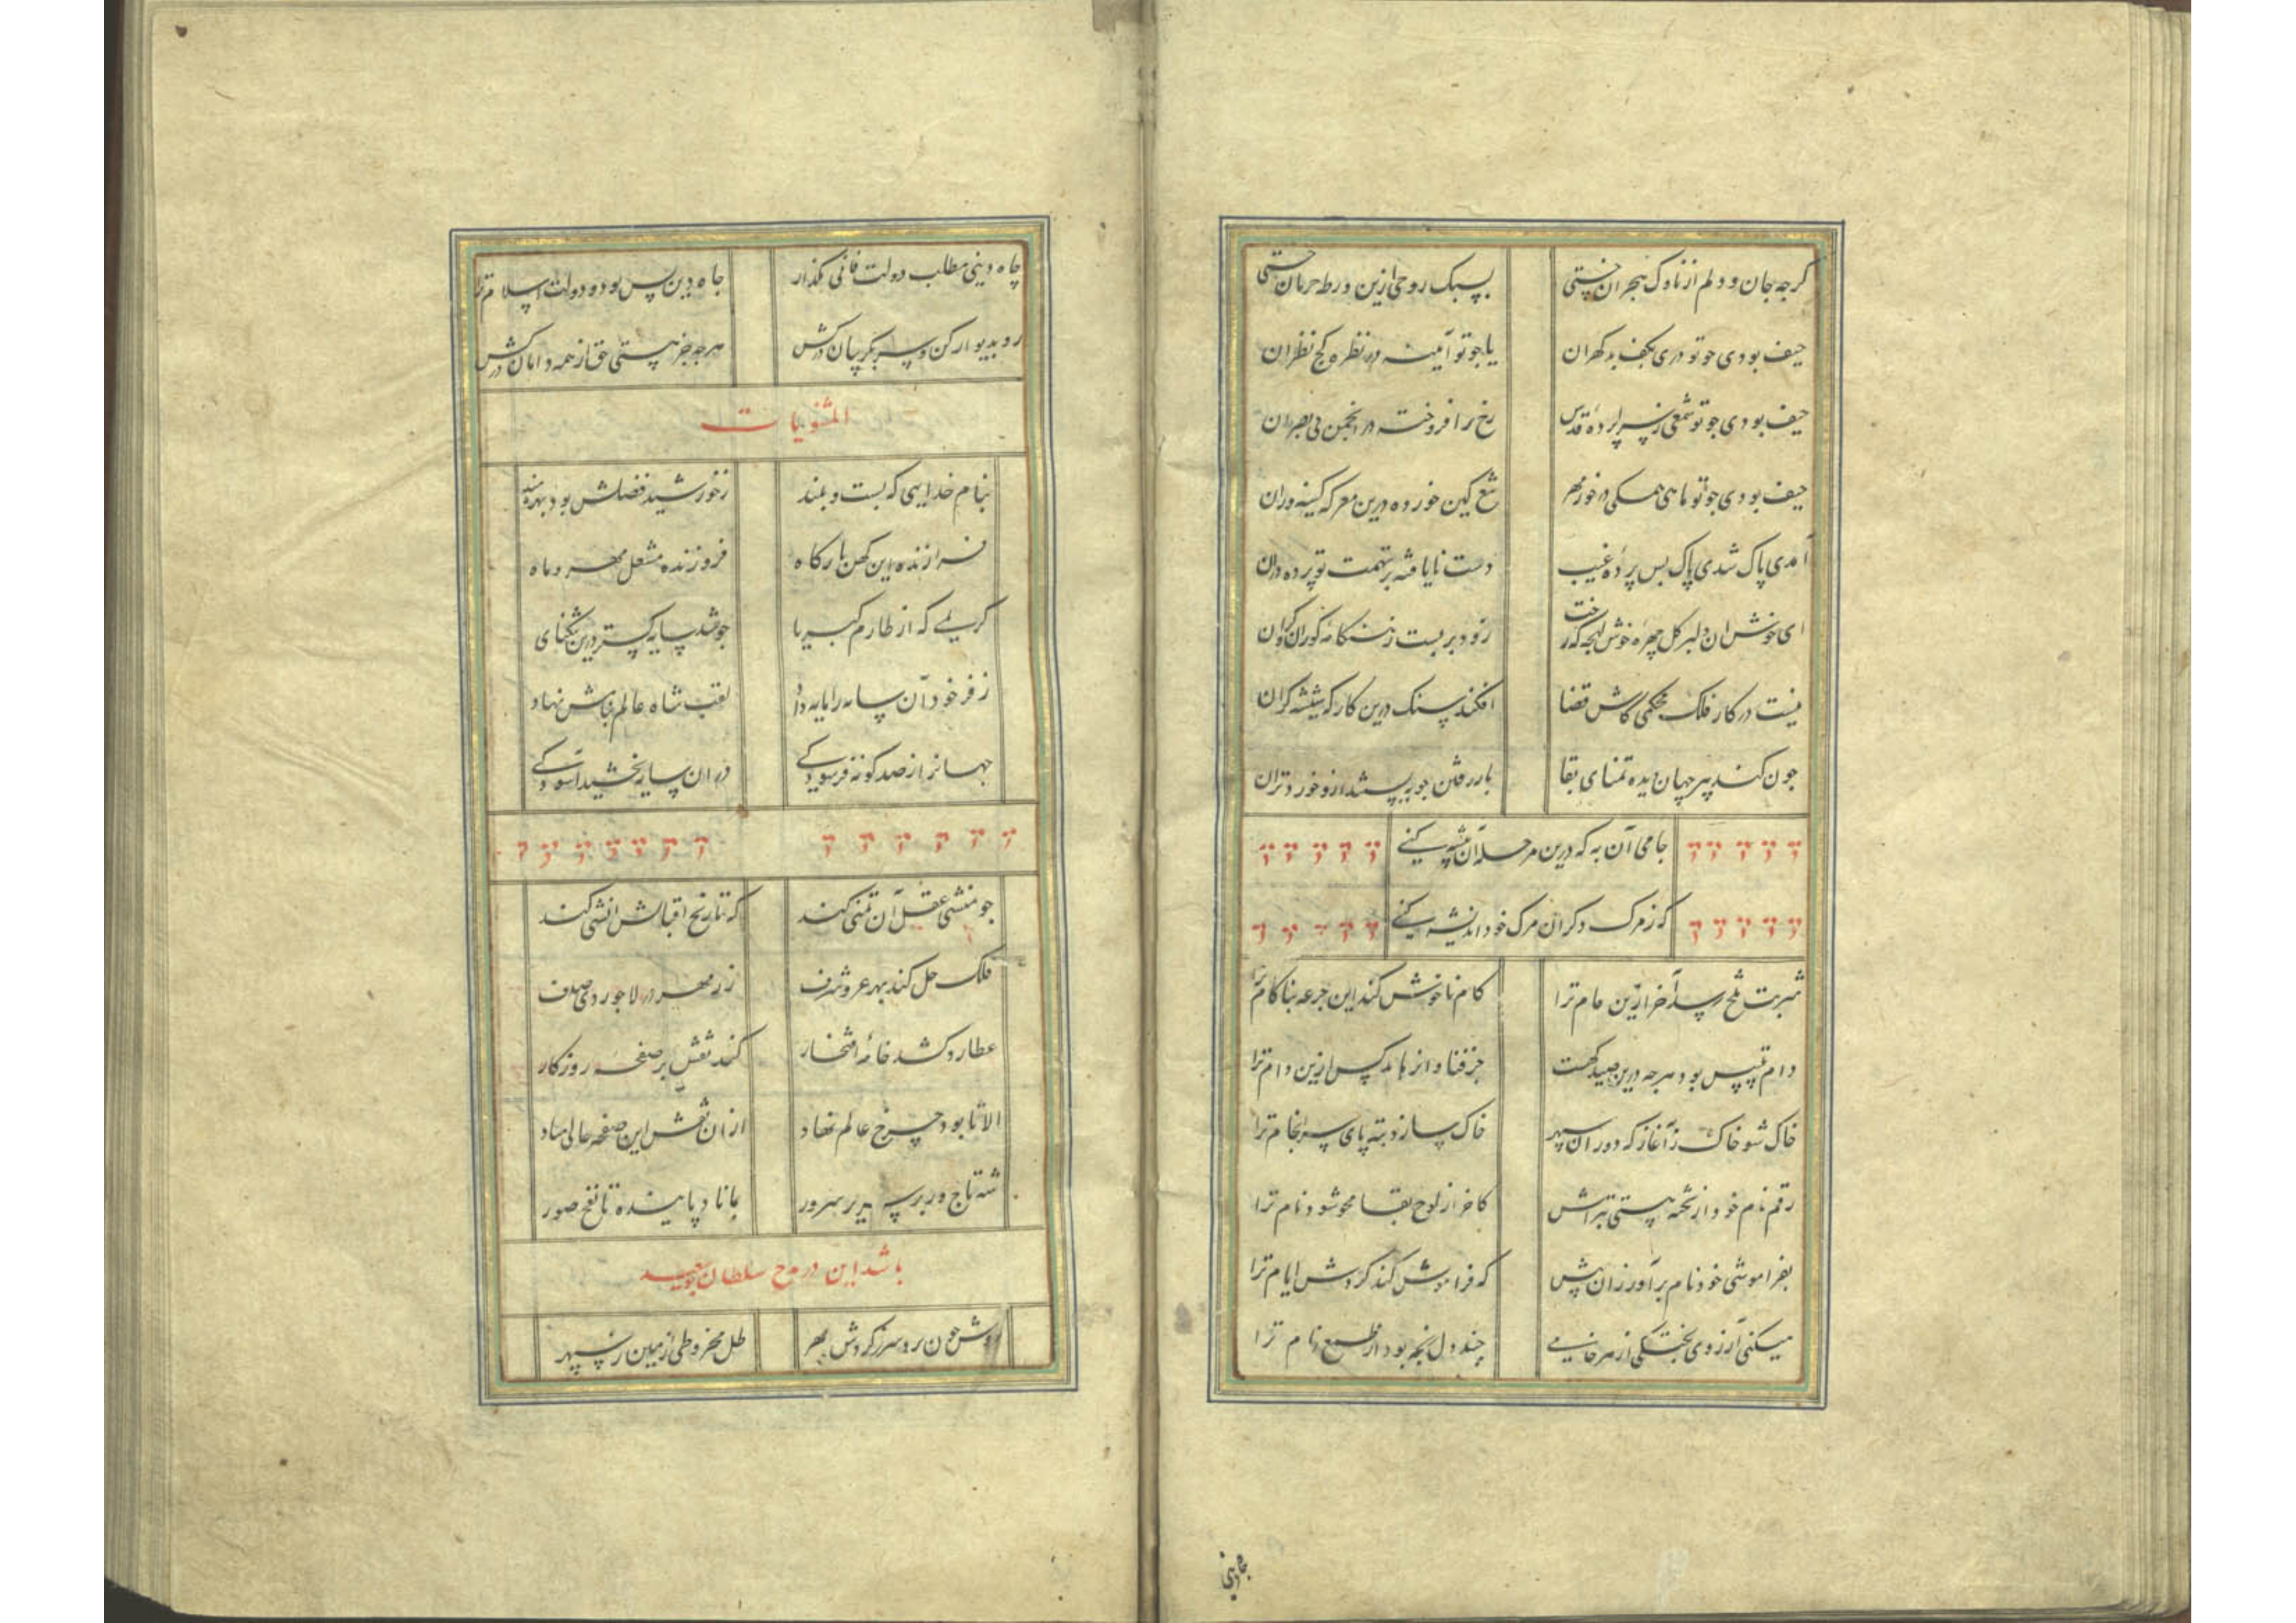 کرجه جان و دلم از ناوک هجران خستی بسبک روحی ازین ورطه حرمان جستی
حیف بودی جو تو دری بکف بد کهران یا جو تو آینه در نظره کج نظران
حیف بودی جو تو شمعی ز سراپرده قدس رخ برافروخته در انجمن بی بصران
حیف بودی جو تو ماهی همکی در خور مهر تیغ کین خورده درین معرکه کینه وران
آمدی پاک شدی پاک بس پرده غیب دست نایافته بر تهمت تو پرده دران
ای خوش ان دلبر کل چهره خوش لهجه که رخت زود بر بست ز هنکامه کوران و کران
نیست در کار فلک محکمی کاش قضا افکند سنک درین کارکه شیشه کران
جون کند پیر جهان دیده تمنای بقا بار رفتن جو ببستند ازو خورد تران
جامی آن به که درین مرحله آن پیشه کنی
که ز مرک دکران مرک خود اندیشه کنی
شربت تلخ رسد آخر ازین جام ترا کام ناخوش کند این جرعه بناکام ترا
دام تلبیس بود هرجه درین صیدکهست جز فنا وانرهاند کس ازین دام ترا
خاک شو خاک ز آغاز که دوران سپهر خاک سازد بته پای سرانجام ترا
رقم نام خود از تخته هستی بتراش کاخر از لوح بقا محو شود نام ترا
بفراموشی خود نام برآور زان پیش که فراموش کند کردش ایام ترا
میکنی آرزوی پختکی از هر خامی چند دل پخته بود از طمع خام ترا
جاه دینی
جاه دینی مطلب دولت فانی بکذار جاه دین بس بود و دولت اسلام ترا
رو بدیوار کن و سر بکریبان درکش هرجه جز هستی حق از همه دامان درکش
المثنویات
بنام خدایی که پست و بلند ز خورشید فضلش بود بهره مند
فرازنده این کهن بارکاه فروزنده مشعل مهر و ماه
کریمی که از طارم کبریا جو شد سایه کستر درین تنکنای
ز فر خود آن سایه را پایه داد لقب شاه عالم پناهش نهاد
جهانرا ز صد کونه فرسودکی در ان سایه بخشید آسودکی
جو منشی عقل آن تمنی کند که تاریخ اقبالش انشی کند
فلک حل کند بهر عز و شرف زر مهر در لاجوردی صدف
عطارد کشد خامه افتخار کند نقش بر صفحه روزکار
الا تا بود چرخ عالم نهاد ازان نقش این صفحه خالی مباد
شه تاجور بر سریر سرور بماناد پاینده تا نفخ صور
باشد این در مدح سلطان بوسعید
دوش جون رد سر ز کردش مهر ظل مخروطی از زمین بر سپهر